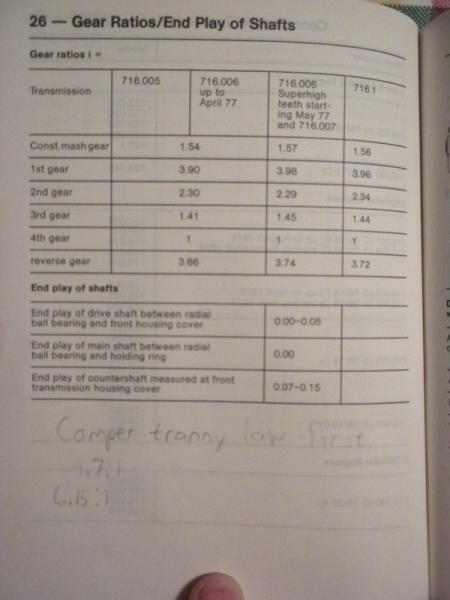 26 — Gear Ratios/End Play of Shafts
Gear ratios i =
Transmission 716.005 716.006 up to April 77 716.006 Superhigh teeth start- ing May 77 and 716.007 716.1
Const.mash gear 1.54 1.57 1.56
1st gear 3.90 3.98 3.96
2nd gear 2.30 2.29 2.34
3rd gear 1.41 1.45 1.44
4th gear 1 1 1
reverse gear 3.66 3.74 3.72
End play of shafts
End play of drive shaft between radial
ball bearing and front housing cover 0.00–0.05
End play of main shaft between radial
ball bearing and holding ring 0.00
End play of countershaft measured at front
transmission housing cover 0.07–0.15
Camper tranny low first.
6.15:1